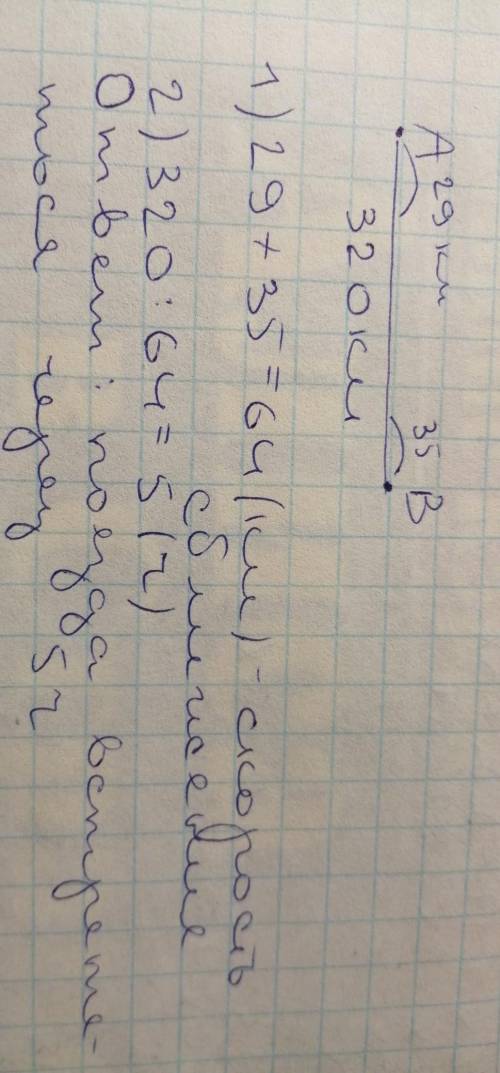 A 29 км 35 B
320 км
1) 29 + 35 = 64 (км) - скорость
сближение
2) 320 : 64 = 5 (ч)
Ответ: поезда встрете-
ться через 5 ч